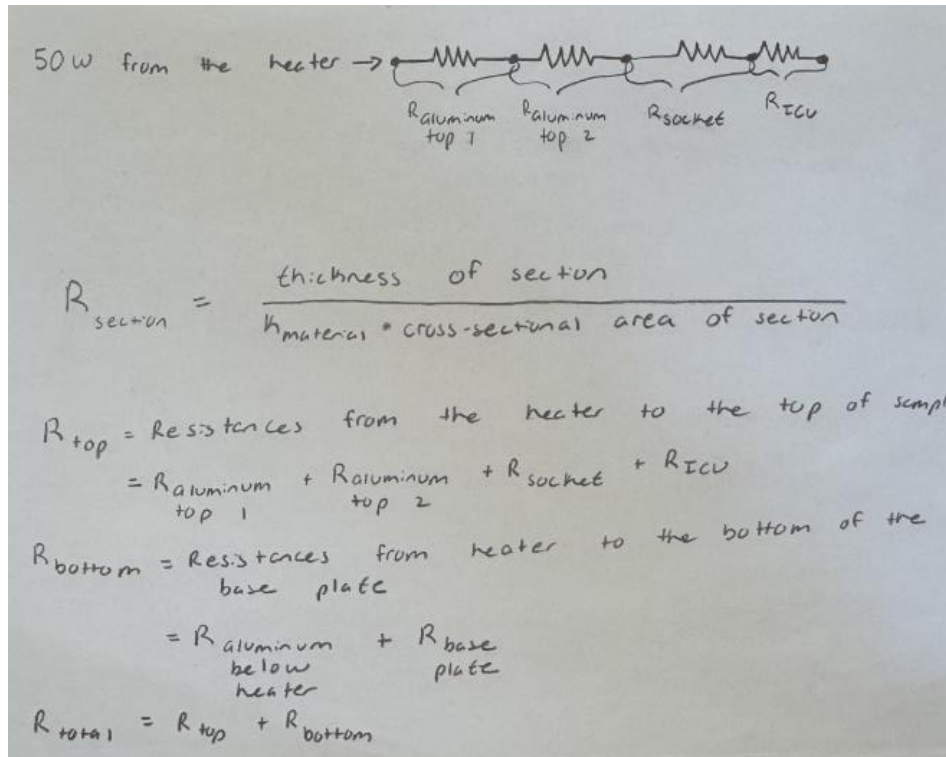 50W from the heater →
R aluminum top 1 R aluminum top 2 R socket R ICU
R section = thickness of section
k material • cross-sectional area of section
R top = Resistances from the heater to the top of sampl
= R aluminum top 1 + R aluminum top 2 + R socket + R ICU
R bottom = Resistances from heater to the bottom of the
base plate
= R aluminum below heater + R base plate
R total = R top + R bottom